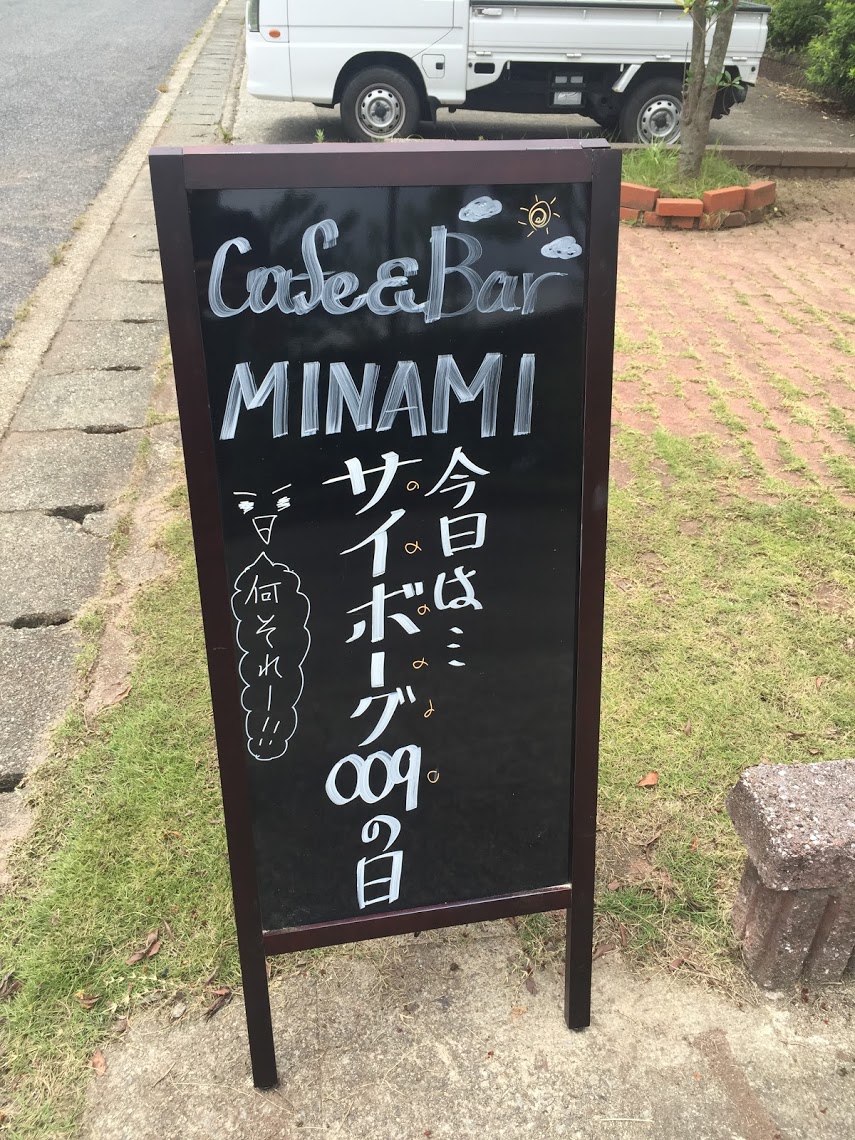 Cafe&Bar
MINAMI
今日は…
サイボーグ009の日
何それー!!